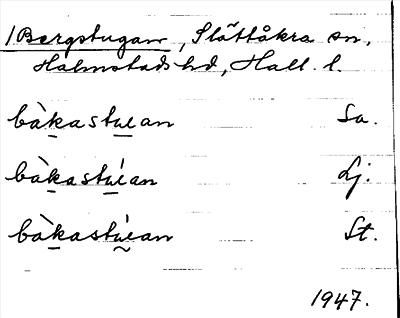 /Bergstugan, Slättåkra sn,
Halmstads hd, Hall. l.
bàkastuan Sa.
bàkastúan Lj.
bàkastúan St.
1947.